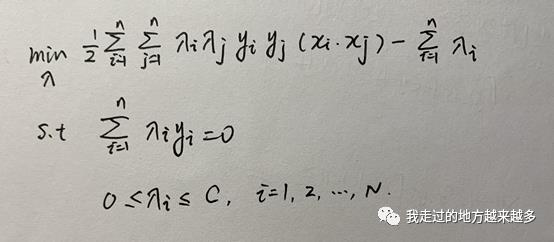 min λ 1/2 ∑_{i=1}^{n} ∑_{j=1}^{n} λi λj yi yj (xi·xj) − ∑_{i=1}^{n} λi
s.t ∑_{i=1}^{n} λi yi = 0
0 ≤ λi ≤ C, i=1, 2, ..., N.
我走过的地方越来越多